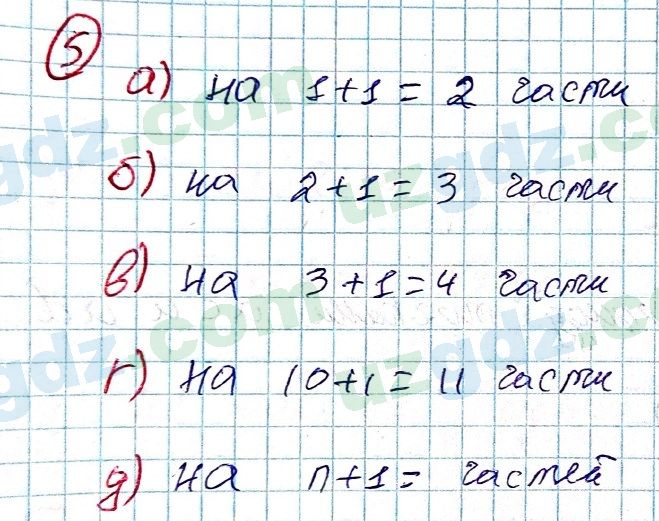 5
а) на 1+1 = 2 части
б) на 2+1 = 3 части
в) на 3+1 = 4 части
г) на 10+1 = 11 части
д) на n+1 = частей
uzgdz.com